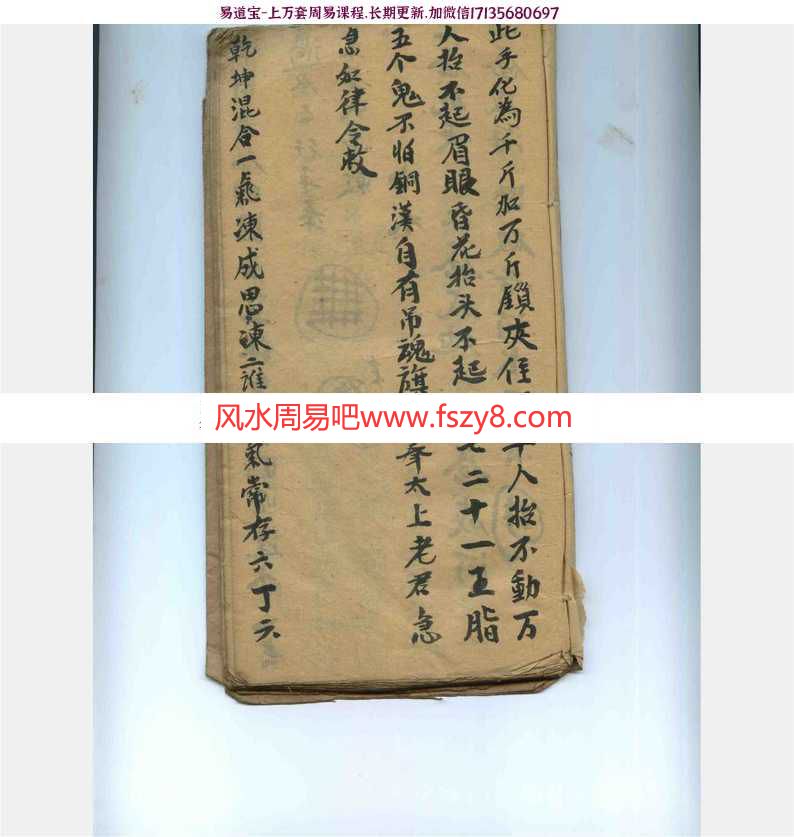 易道宝-上万套周易课程,长期更新,加微信17135680697
此手化為千斤加万斤鎖夾
千人抬不動万
人抬不起眉眼昏花抬头不起
二十一王脂
五个鬼不怕銅漢自有吊魂旗
年太上老君急
急如律令敕
乾坤混合一炁凍成思凍二
氣常存六丁六
风水周易吧www.fszy8.com